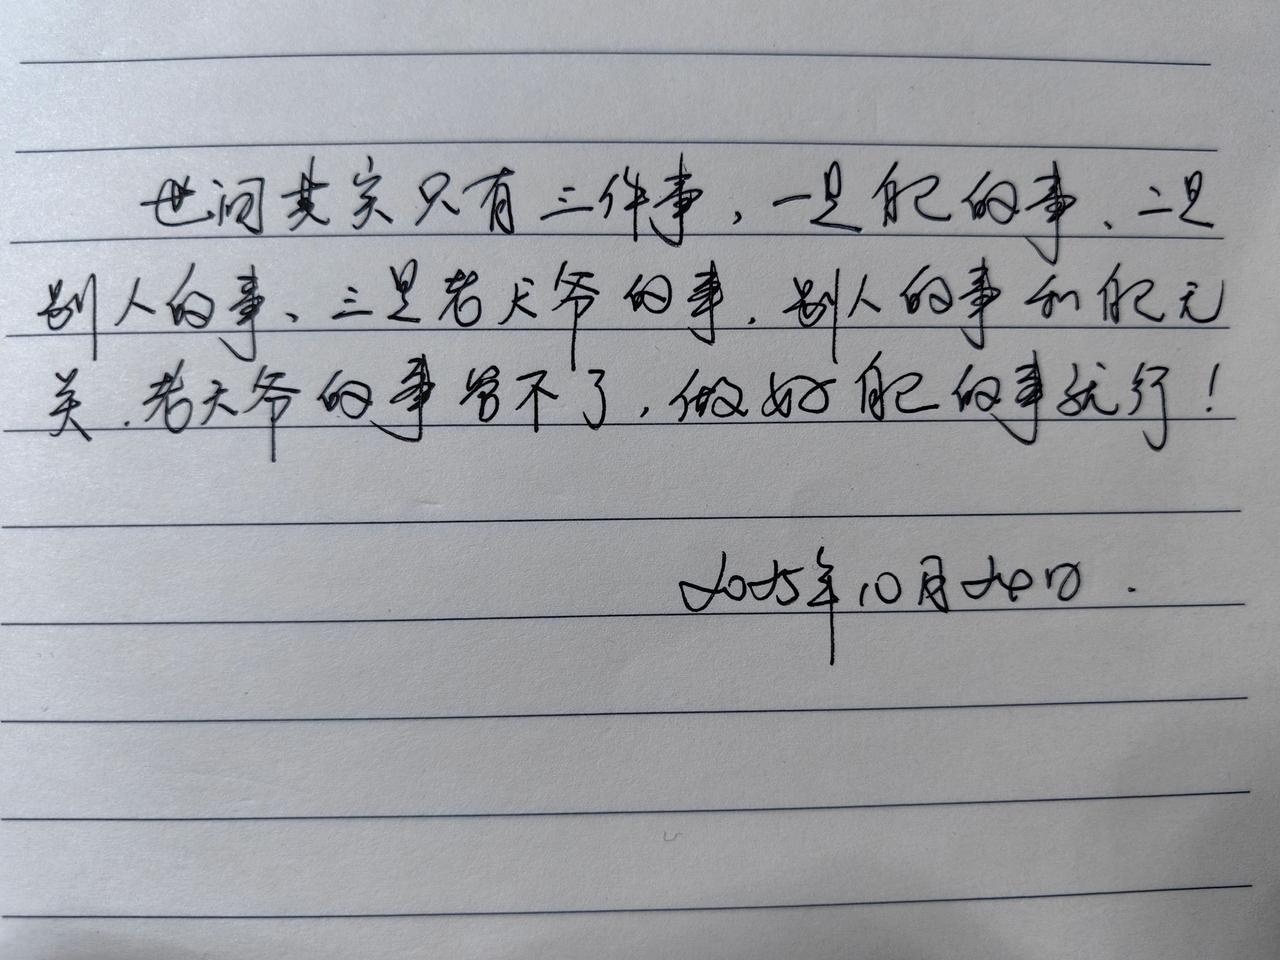 世间其实只有三件事，一是自己的事、二是
别人的事、三是老天爷的事.别人的事和自己无
关.老天爷的事管不了，做好自己的事就行！
2025年10月24日.